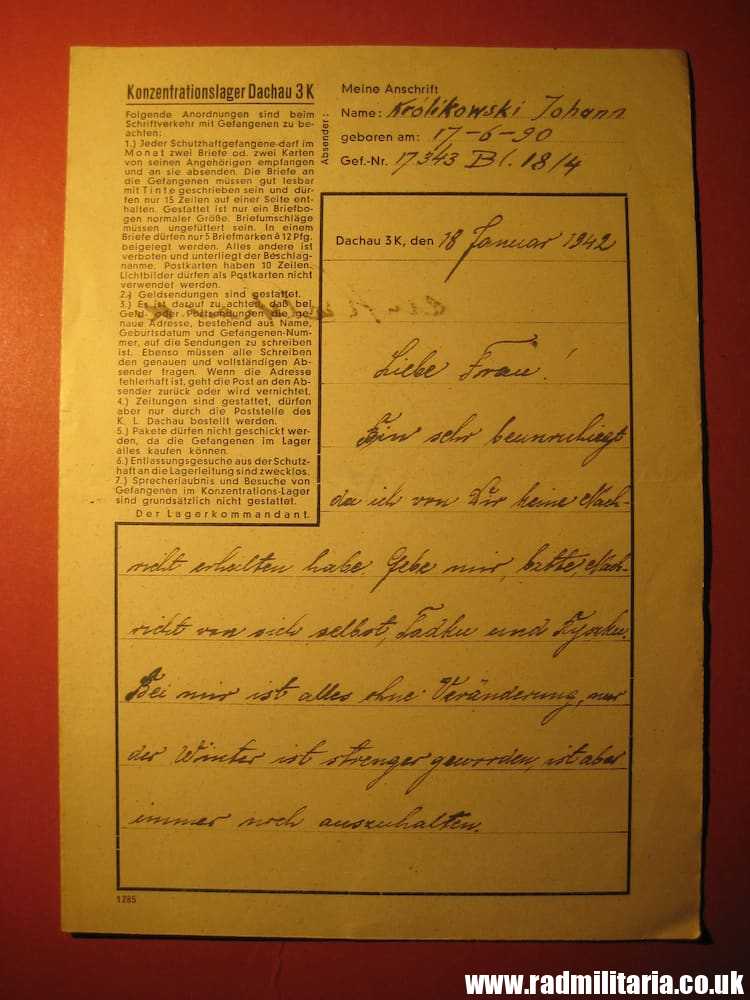 Konzentrationslager Dachau 3 K
Folgende Anordnungen sind beim
Schriftverkehr mit Gefangenen zu be-
achten:
1.) Jeder Schutzhaftgefangene darf im
Monat zwei Briefe od. zwei Karten
von seinen Angehörigen empfangen
und an sie absenden. Die Briefe an
die Gefangenen müssen gut lesbar
mit Tinte geschrieben sein und dür-
fen nur 15 Zeilen auf einer Seite ent-
halten. Gestattet ist nur ein Briefbo-
gen normaler Größe. Briefumschläge
müssen ungefüttert sein. In einem
Briefe dürfen nur 5 Briefmarken à 12 Pfg.
beigelegt werden. Alles andere ist
verboten und unterliegt der Beschlag-
nahme. Postkarten haben 10 Zeilen.
Lichtbilder dürfen als Postkarten nicht
verwendet werden.
2.) Geldsendungen sind gestattet.
3.) Es ist darauf zu achten, daß bei
Geld- oder Postsendungen die ge-
naue Adresse, bestehend aus Name,
Geburtsdatum und Gefangenen-Num-
mer, auf die Sendungen zu schreiben
ist. Ebenso müssen alle Schreiben
den genauen und vollständigen Ab-
sender tragen. Wenn die Adresse
fehlerhaft ist, geht die Post an den Ab-
sender zurück oder wird vernichtet.
4.) Zeitungen sind gestattet, dürfen
aber nur durch die Poststelle des
K. L. Dachau bestellt werden.
5.) Pakete dürfen nicht geschickt wer-
den, da die Gefangenen im Lager
alles kaufen können.
6.) Entlassungsgesuche aus der Schutz-
haft an die Lagerleitung sind zwecklos.
7.) Sprecherlaubnis und Besuche von
Gefangenen im Konzentrations-Lager
sind grundsätzlich nicht gestattet.
Der Lagerkommandant.
Absender:
Meine Anschrift
Name: Królikowski Johann
geboren am: 17-6-90
Gef.-Nr. 17343 Bl. 18/4
Dachau 3 K, den 18 Januar 1942
Liebe Frau!
Bin sehr beunruhiegt
da ich von Dir keine Nach-
richt erhalten habe. Gebe mir, bitte, Nach-
richt von sich selbst, Tadku und Zysku.
Bei mir ist alles ohne Veränderung, nur
der Winter ist strenger geworden, ist aber
immer noch auszuhalten.
1285
www.radmilitaria.co.uk